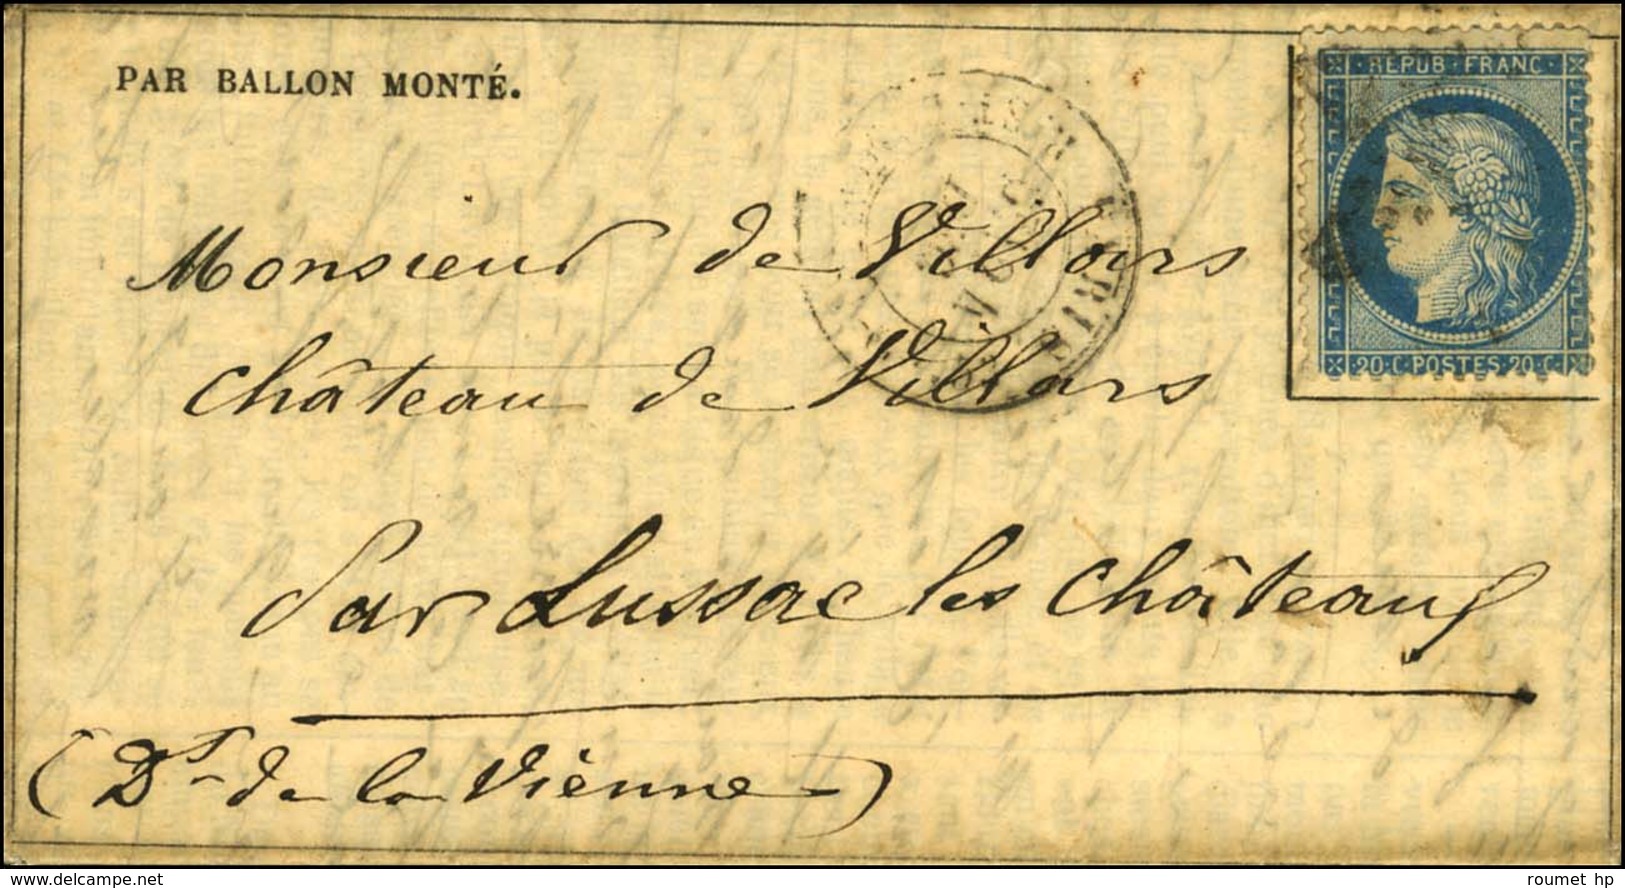 PAR BALLON MONTÉ.
REPUB · FRANC ·
20 · C · POSTES · 20 · C ·
PARIS
Monsieur de Villars
château de Villars
par Lussac les châteaux
(Dt de la Vienne)
www.delcampe.net
roumet hp